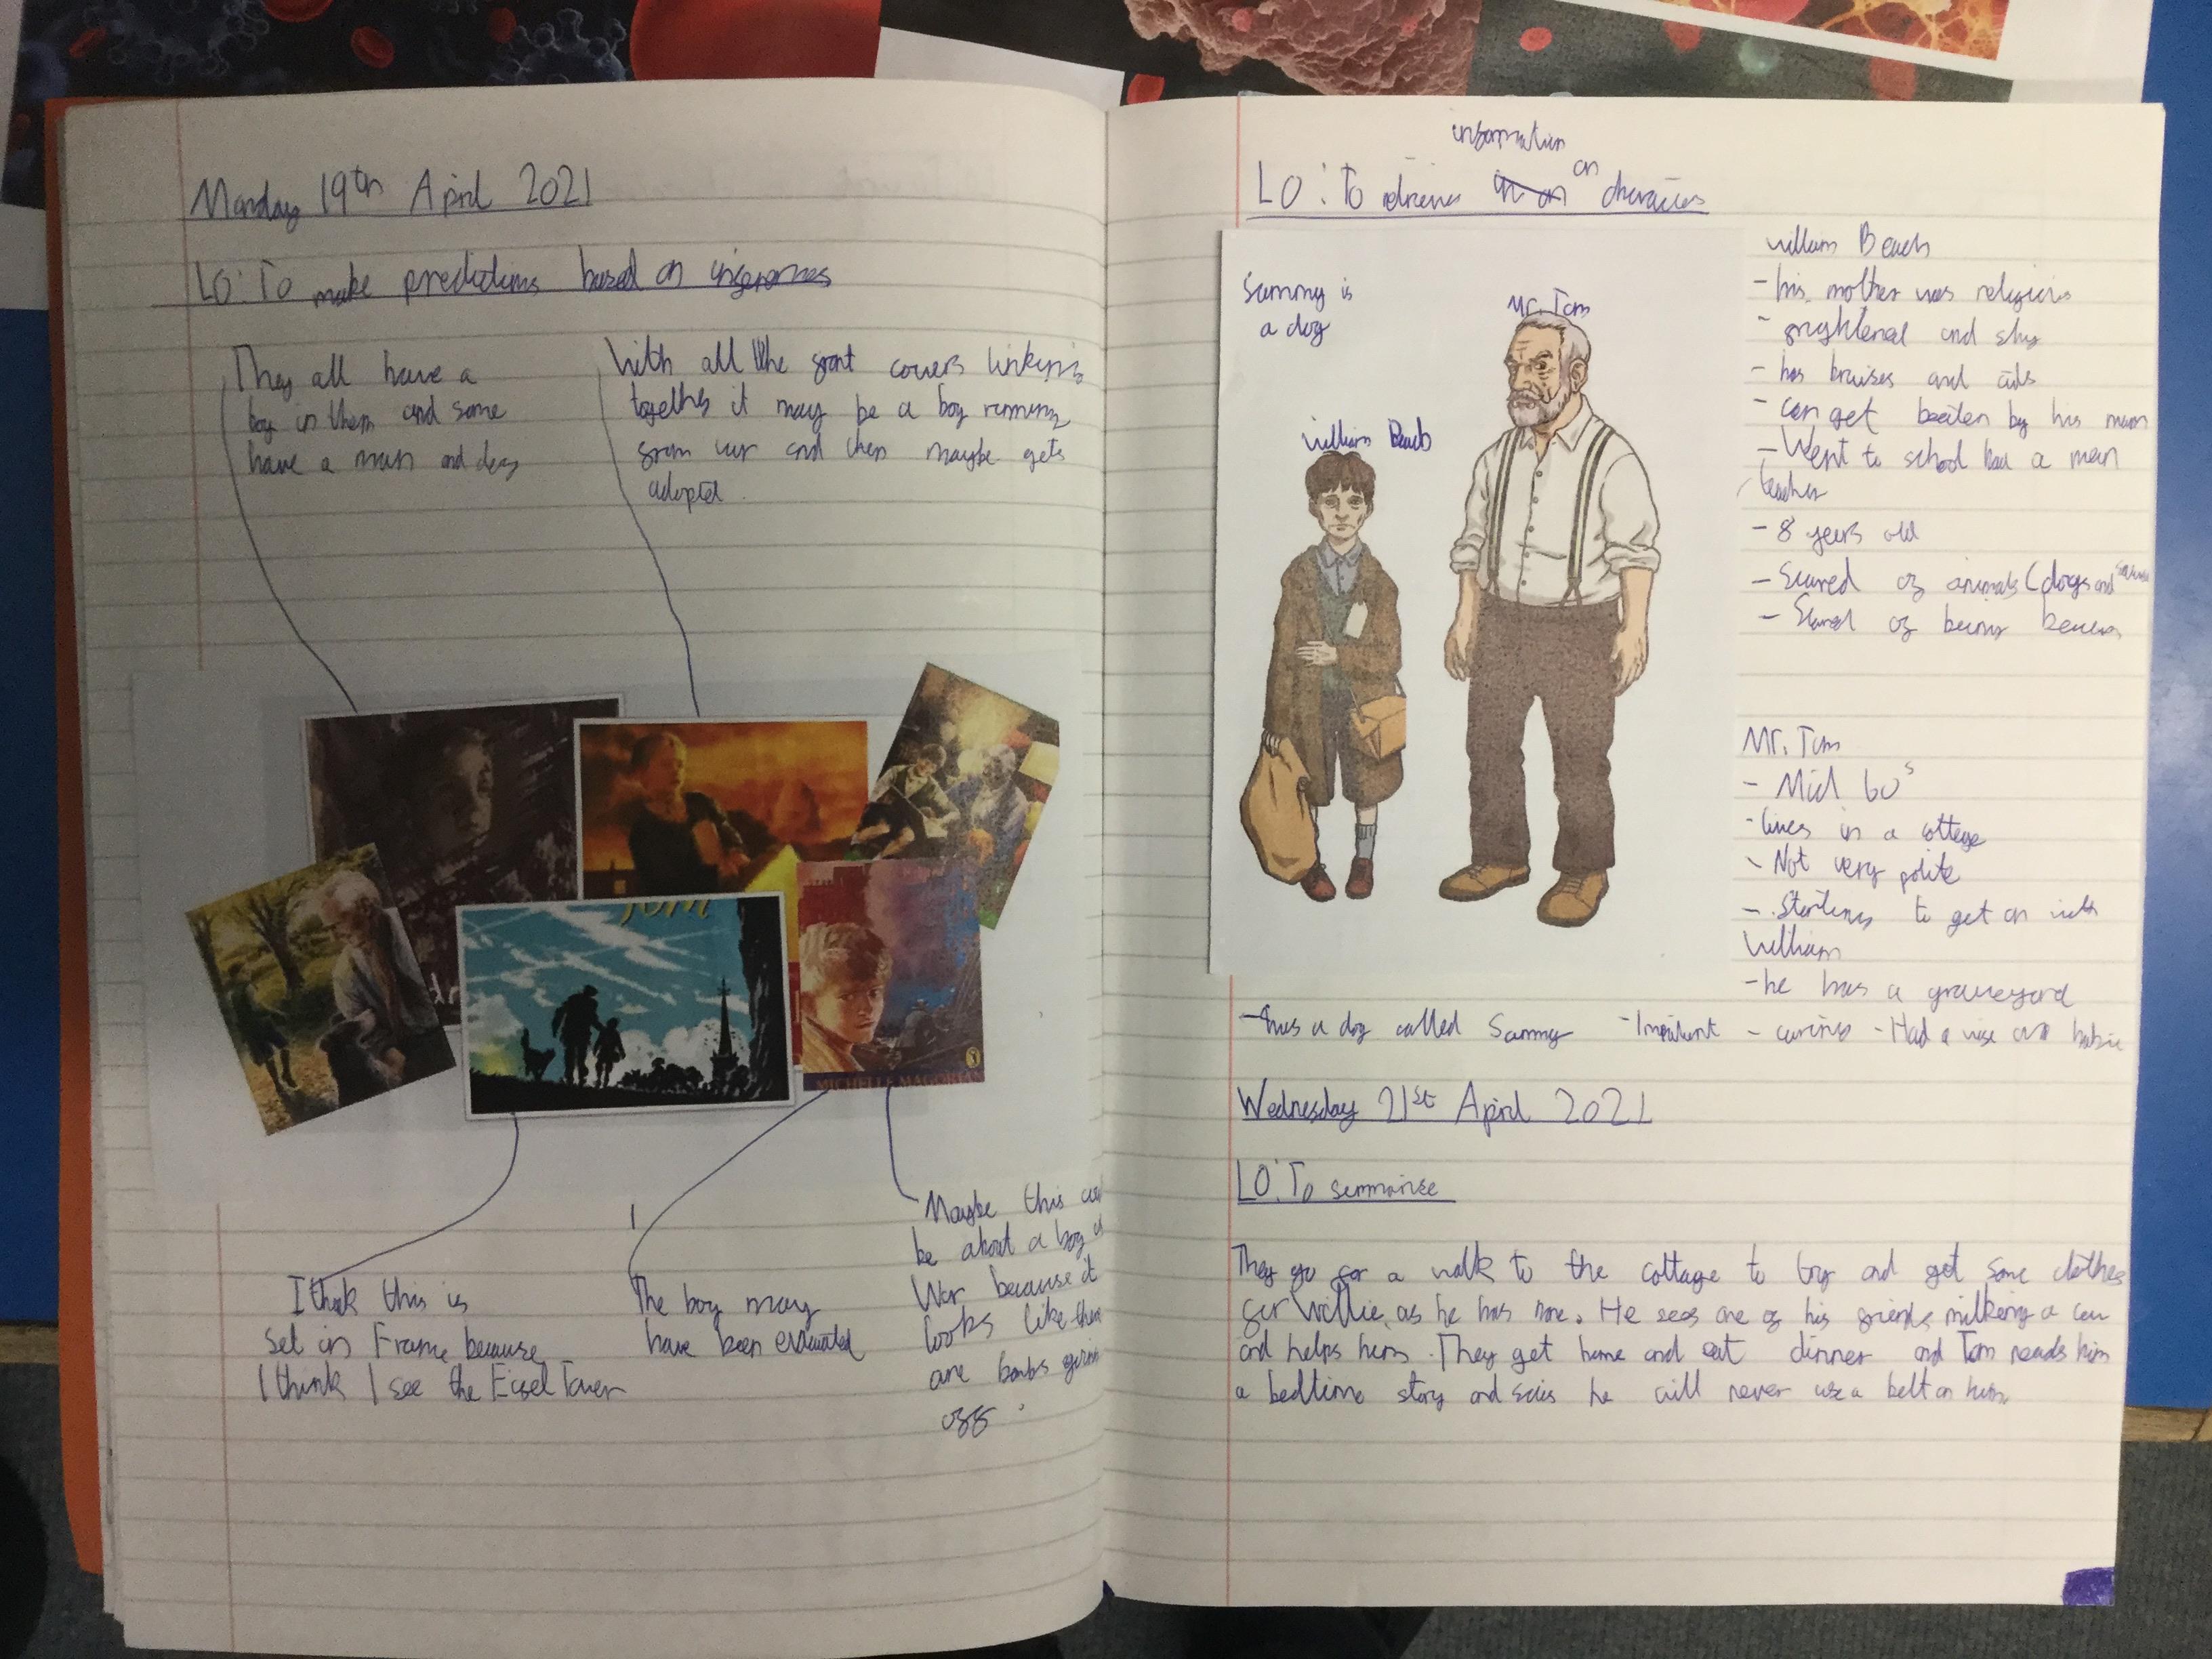 Monday 19th April 2021
LO: To make predictions based on inferences
They all have a
boy in them and some
have a man and dog
With all the front covers linking
together it may be a boy running
from war and then maybe gets
adopted.
Tom
MICHELLE MAGORIAN
I think this is
set in France because
I think I see the Eiffel Tower
The boy may
have been evacuated
Maybe this
be about a boy
War because it
looks like there
are bombs going
off.
information
LO: To retrieve on characters
Sammy is
a dog
Mr. Tom
William Beach
William Beach
- his mother was religious
- frightened and shy
- has bruises and cuts
- can get beaten by his mum
- Went to school had a mean
teacher
- 8 years old
- Scared of animals (dogs and
- Scared of being beaten
Mr. Tom
- Mid 60s
- lives in a cottage
- Not very polite
- Starting to get on with
William
- he has a graveyard
- has a dog called Sammy - Impatient - caring - Had a wife and babie
Wednesday 21st April 2021
LO: To summarise
They go for a walk to the cottage to try and get some clothes
for Willie, as he has none. He sees one of his friends milking a cow
and helps him. They get home and eat dinner and Tom reads him
a bedtime story and he will never use a belt on him.